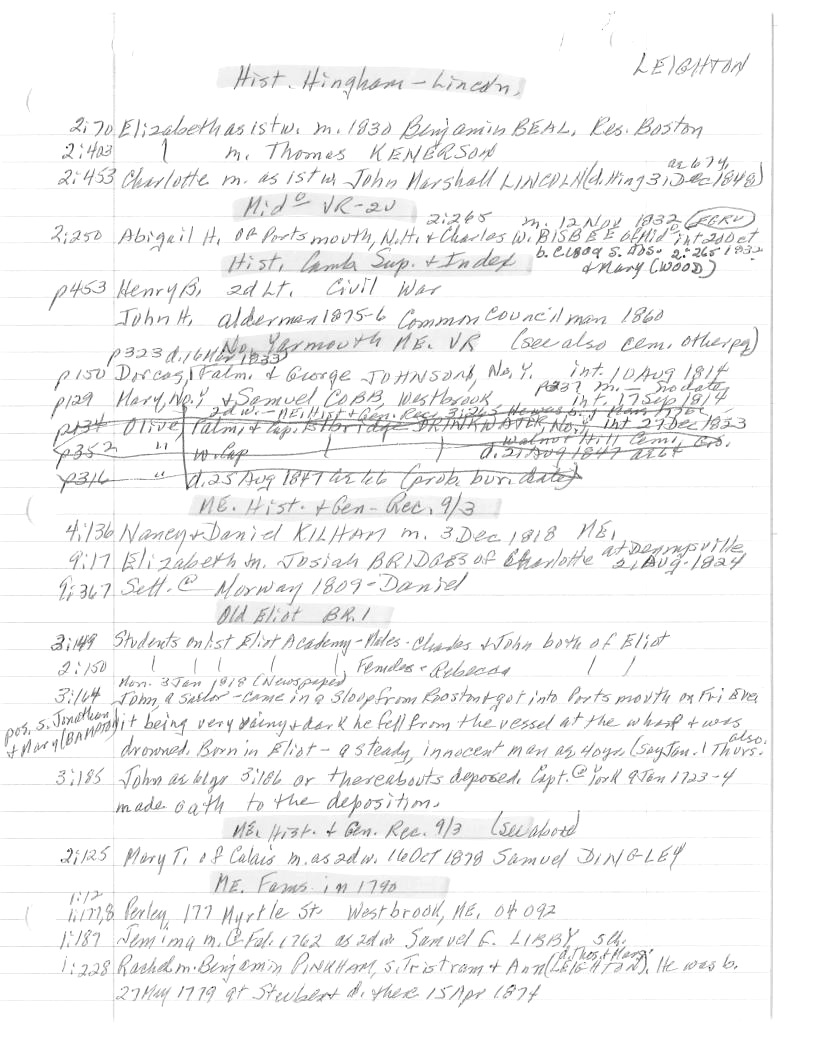 LEIGHTON
Hist. Hingham - Lincoln.
2:70 Elizabeth as 1st w. m. 1830 Benjamin BEAL, Res. Boston
2:403 " m. Thomas KENERSON
2:453 Charlotte m. as 1st w. John Marshall LINCOLN (d. Hing 31 Dec 1848) ae 67y,
Mid° VR-2U
2:265 m. 12 Nov 1832 (EGRU)
2:250 Abigail H. of Portsmouth, N.H. & Charles W. BISBEE of Mid° int 20 Oct 1832
b. C1809 s. Ads. 2:265
& Mary (WOOD)
Hist. Camb Sup. & Index
p453 Henry B, 2d Lt. Civil War
John H, alderman 1875-6 Common Councilman 1860
No. Yarmouth ME. VR (see also cem. other pg)
p323 d. 16 1833
p150 Dorcas, Falm. & George JOHNSON, No. Y. int. 10 Aug 1814
p237 m. - no date
p129 Mary, No. Y & Samuel COBB, Westbrook, int. 17 Sep 1814
2d w. - ME. Hist & Gen. Rec. 3:263 He was b.
p134 Olive, Falm, & Cap. Elbridge DRINKWATER, No. Y int 27 Dec 1833
Walnut Hill Cem.
p352 " w. Cap d. 21 Aug 1847 ae 64
p316 " d. 25 Aug 1847 ae 66 (prob. bur. date)
ME. Hist. & Gen- Rec. 9/3
4:136 Nancy & Daniel KILHAM m. 3 Dec 1818 ME,
9:17 Elizabeth m. Josiah BRIDGES of Charlotte at Dennysville 21 Aug. 1824
9:367 Sett. @ Norway 1809 - Daniel
Old Eliot BR.1
3:149 Students on list Eliot Academy - Males - Charles & John both of Eliot
2:150 Females - Rebecca
Mon. 3 Jan 1818 (Newspaper)
3:164 John, a Sailor - came in a Sloop from Boston & got into Portsmouth on Fri Eve,
pos. s. Jonathan & Mary (BAMDON) it being very rainy & dark he fell from the vessel at the wharf & was
drowned. Born in Eliot - a steady, innocent man ae 40yrs (Say Jan. 1 Thurs. also.
3:185 John ae 61yr 3:186 or thereabouts deposed. Capt. @ York 9 Jan 1723-4
made oath to the deposition.
ME. Hist. & Gen. Rec. 9/3 (see above)
2:125 Mary T. of Calais m. as 2d w. 16 Oct 1878 Samuel DINGLEY
ME. Fams. in 1790
1:12
1:177,8 Perley, 177 Myrtle St. Westbrook, ME. 04092
1:187 Jemima m. @ Fal. 1762 as 2d w. Samuel LIBBY, 5 ch.
d. Thos. & Mary
1:228 Rachel m. Benjamin PINKHAM, s. Tristram & Ann (LEIGHTON). He was b.
27 May 1779 at Steuben & d. there 15 Apr 1874